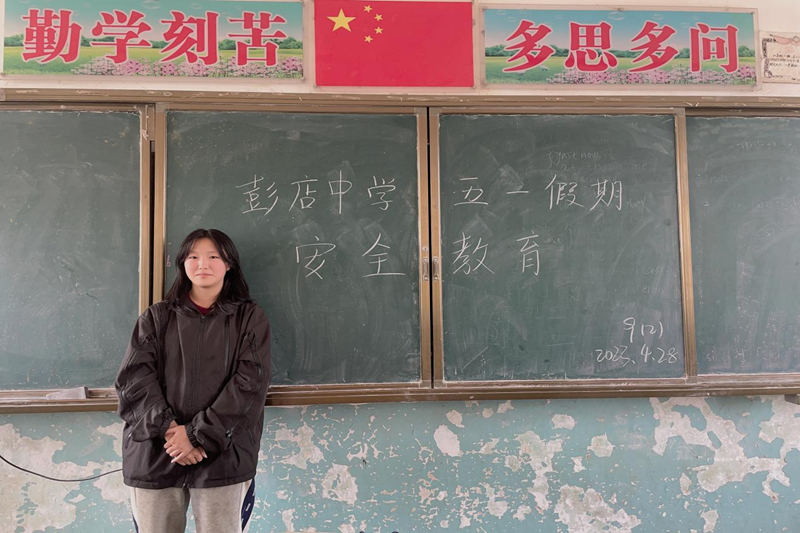 勤学刻苦
多思多问
彭店中学 五一假期
安全教育
9(2)
2023.4.28